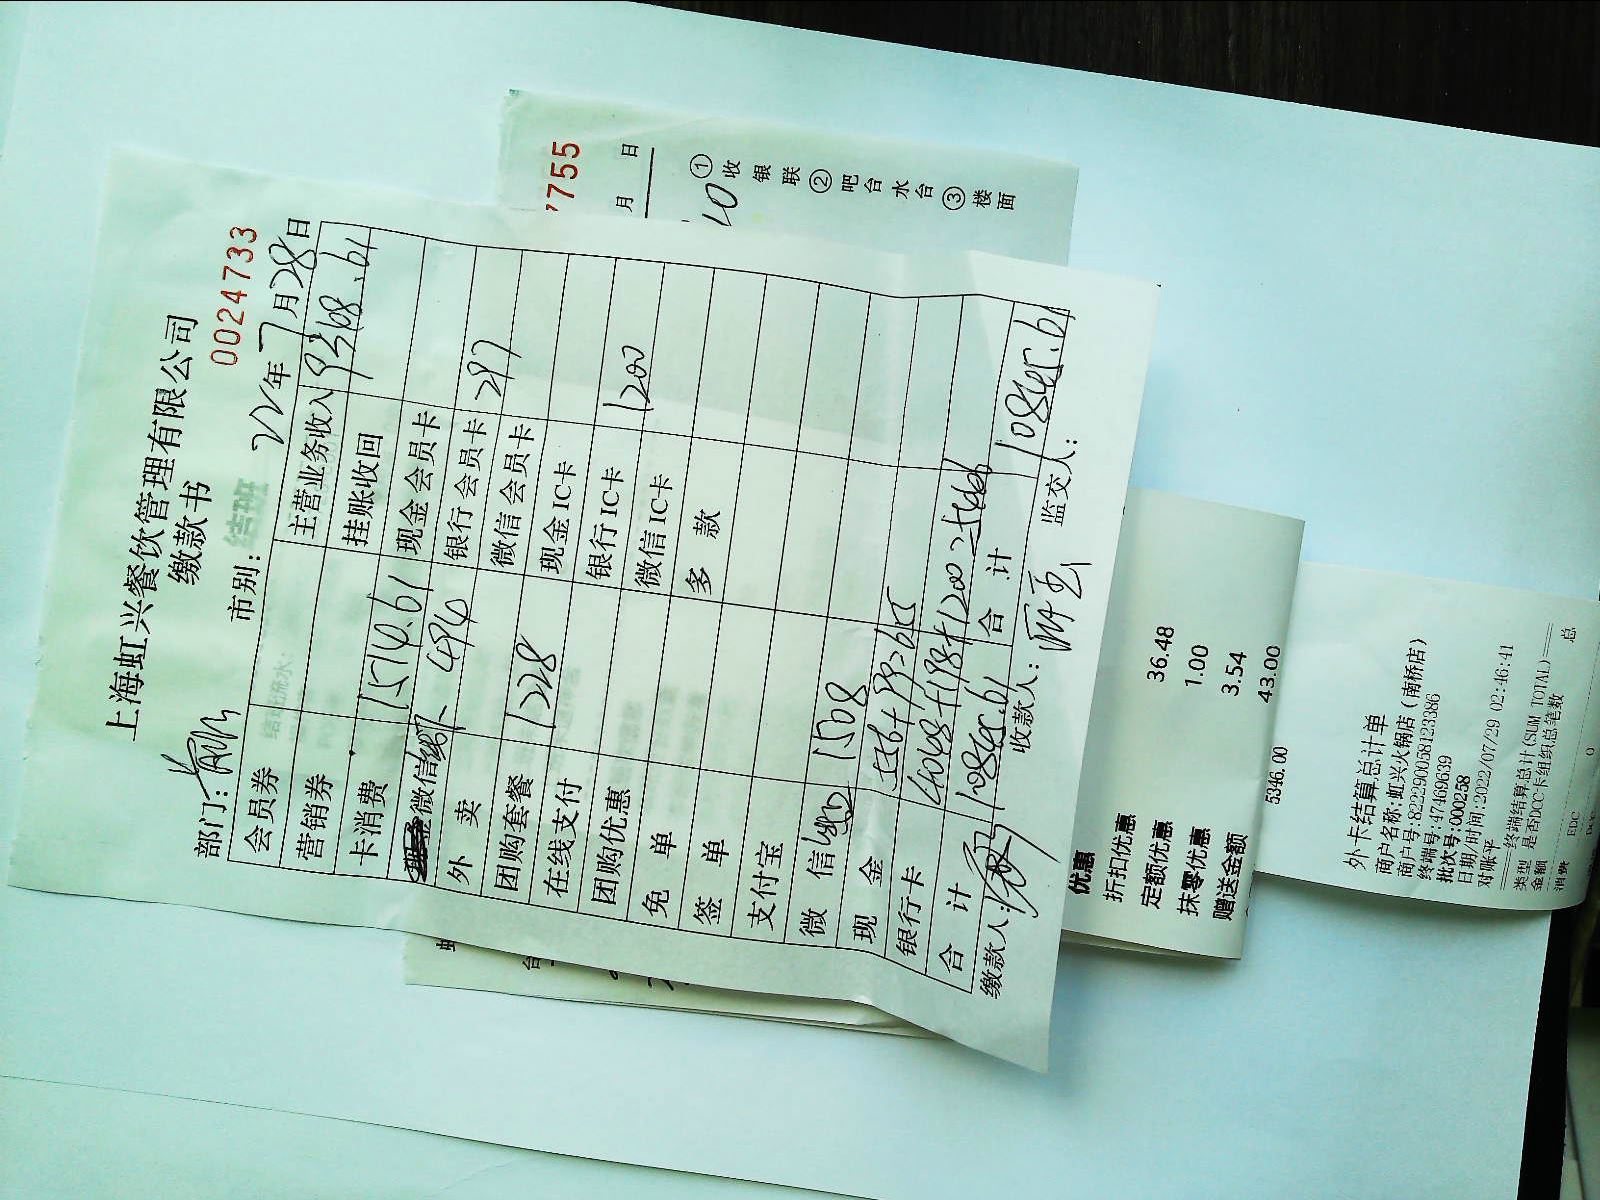 上海虹兴餐饮管理有限公司
缴款书
0024733
部门:
市别: 结班 22年7月28日
会员券 主营业务收入 9368.61
营销券 挂账收回
卡消费 1514.61 现金会员卡
微信 494 银行会员卡 297
外 卖 微信会员卡
团购套餐 1228 现金IC卡
在线支付 银行IC卡 1200
团购优惠 微信IC卡
免 单 多 款
签 单
支付宝
微 信 1508
现 金
银行卡 4048+98+1200=5346
合 计 10865.61 合 计 10865.61
缴款人: 收款人: 监交人:
7755
月 日
①收银联②吧台水台③楼面
优惠
折扣优惠 36.48
定额优惠 1.00
抹零优惠 3.54
赠送金额 43.00
5346.00
外卡结算总计单
商户名称:虹兴火锅店(南桥店)
商户号:822290058123386
终端号:47469639
批次号:000258
日期/时间:2022/07/29 02:46:41
对账平
终端结算总计(SUM TOTAL)
类型 是否DCC卡组织总笔数 总
金额
消费 EDC 0